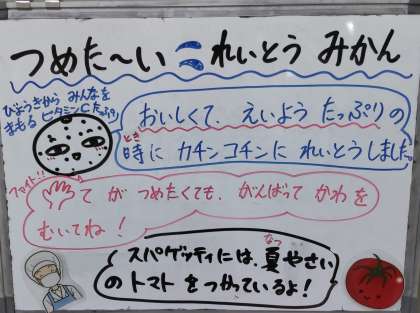 つめた〜い れいとう みかん
びょうきから みんなを
まもる ビタミンCたっぷり
おいしくて、えいよう たっぷりの
とき
時に カチンコチンに れいとうしました。
ファイト!!
て が つめたくても、がんばって かわを
むいてね!
なつ
スパゲッティには、夏やさい
の トマト を つかっているよ!